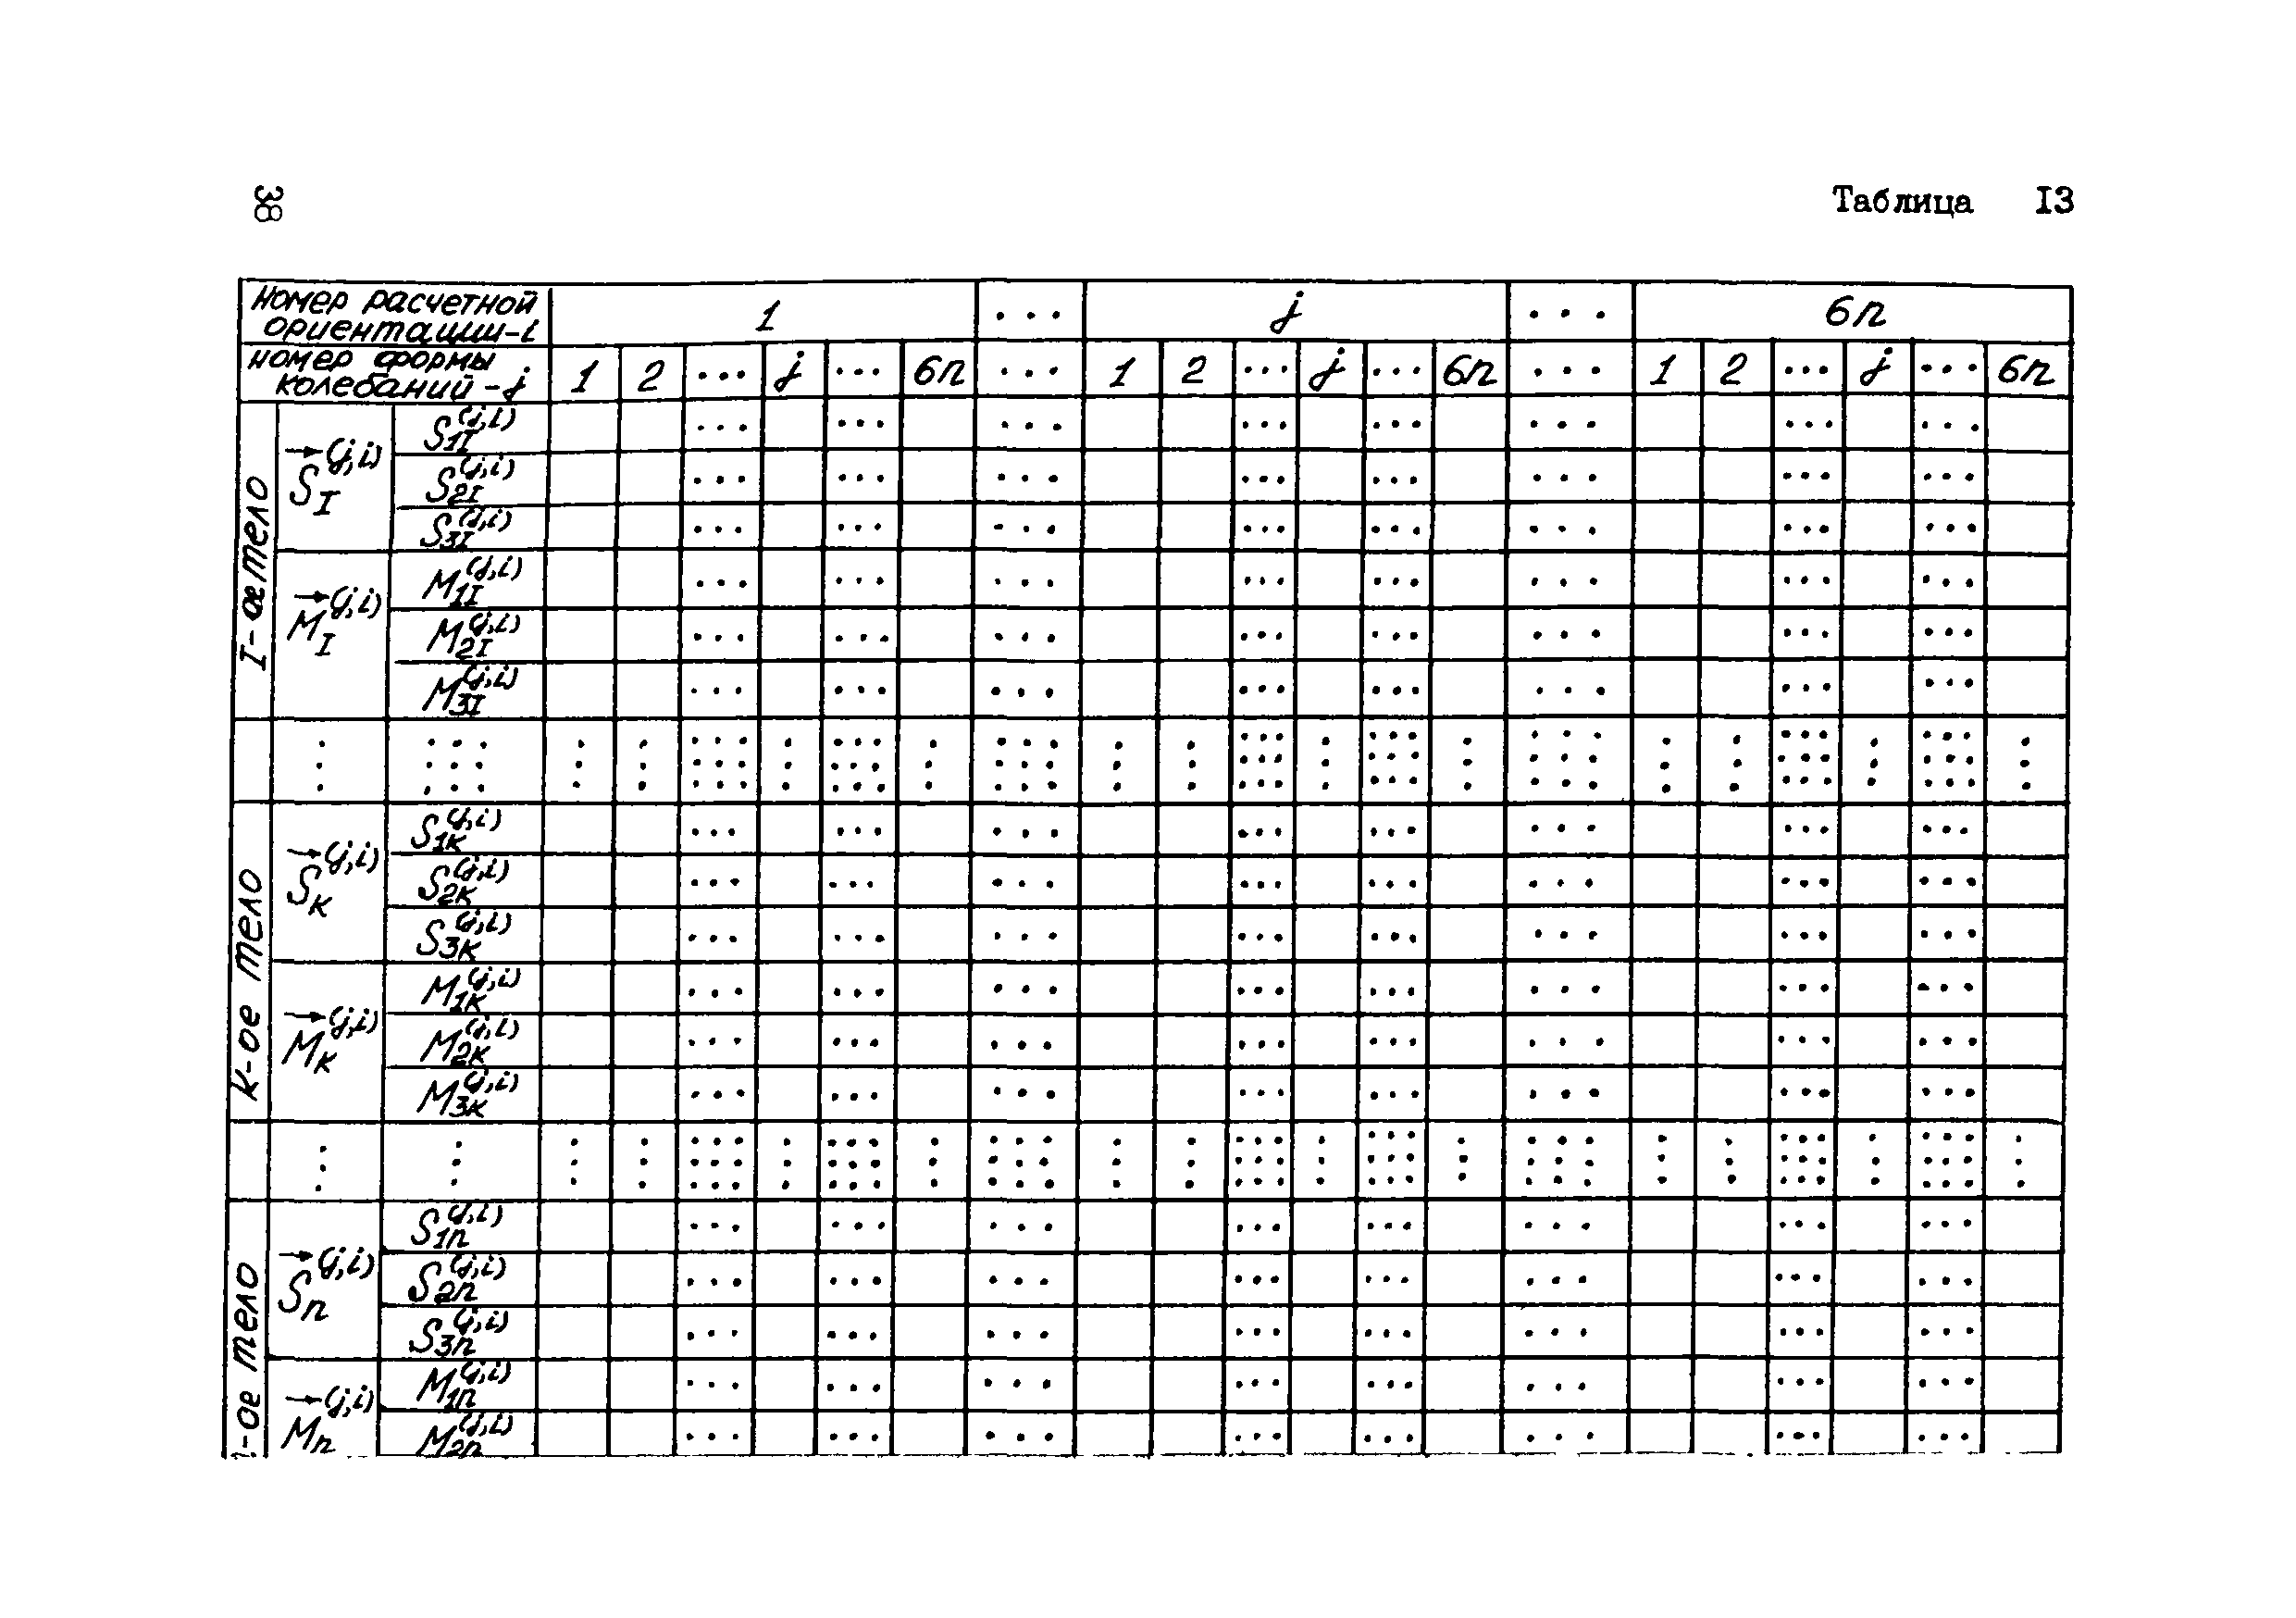 38
Таблица I3
Номер расчетной ориентации-i 1 ... j ... 6n
номер формы колебаний-j 1 2 ... j ... 6n ... 1 2 ... j ... 6n ... 1 2 ... j ... 6n
I-ое тело
S⃗_I^(j,i)
S_1I^(j,i) ... ... ... ... ... ... ... ...
S_2I^(j,i) ... ... ... ... ... ... ... ...
S_3I^(j,i) ... ... ... ... ... ... ... ...
M⃗_I^(j,i)
M_1I^(j,i) ... ... ... ... ... ... ... ...
M_2I^(j,i) ... ... ... ... ... ... ... ...
M_3I^(j,i) ... ... ... ... ... ... ... ...
К-ое тело
S⃗_к^(j,i)
S_1к^(j,i) ... ... ... ... ... ... ... ...
S_2к^(j,i) ... ... ... ... ... ... ... ...
S_3к^(j,i) ... ... ... ... ... ... ... ...
M⃗_к^(j,i)
M_1к^(j,i) ... ... ... ... ... ... ... ...
M_2к^(j,i) ... ... ... ... ... ... ... ...
M_3к^(j,i) ... ... ... ... ... ... ... ...
n-ое тело
S⃗_n^(j,i)
S_1n^(j,i) ... ... ... ... ... ... ... ...
S_2n^(j,i) ... ... ... ... ... ... ... ...
S_3n^(j,i) ... ... ... ... ... ... ... ...
M⃗_n^(j,i)
M_1n^(j,i) ... ... ... ... ... ... ... ...
M_2n^(j,i) ... ... ... ... ... ... ... ...